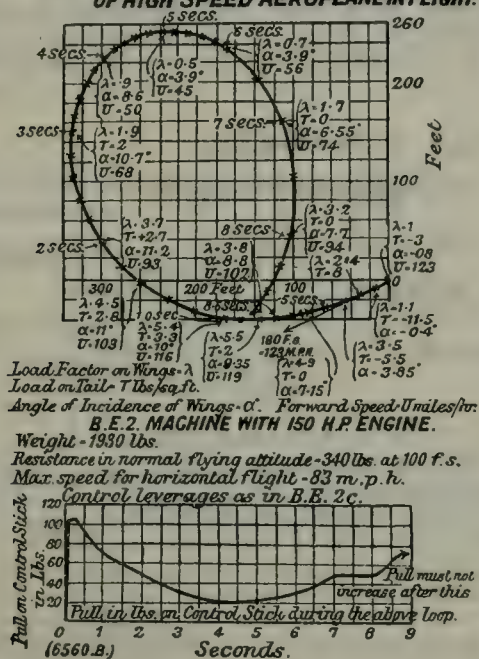 OF HIGH SPEED AEROPLANE IN FLIGHT.
5 secs.
260
4 secs.
6 secs.
λ=0·7
α=3·9°
U=56
λ=0·5
α=3·9°
U=45
200
λ=·9
α=8·6
U=50
λ=1·7
T=0
α=6·55°
U=74
7 secs.
Feet
3 secs.
λ=1·9
T=2
α=10·7°
U=68
100
λ=3·2
T=0
α=7·7
U=94
8 secs.
λ=3·7
T=+2·7
α=11·2
U=93
2 secs.
λ=3·8
α=8·8
U=102
λ=1
T=-3
α=·08
U=123
λ=2·4
T=8
0
300
200
Feet
100
0
λ=4·5
T=2·8
α=11°
U=103
1·0 sec.
λ=5·4
T=3·3
α=10°
U=116
8·6 secs.
·5 secs.
λ=5·5
T=2
α=9·35
U=119
180 F.S.
=123 M.P.H.
λ=4·9
T=0
α=7·15°
λ=1·1
T=-11·5
α=-0·4°
λ=3·5
T=-5·5
α=3·85°
Load Factor on Wings=λ
Load on Tail=T lbs/sq.ft.
Angle of Incidence of Wings=α°. Forward Speed=U miles/hr.
B.E.2. MACHINE WITH 150 H.P. ENGINE.
Weight=1930 lbs.
Resistance in normal flying attitude=340 lbs. at 100 f.s.
Max. speed for horizontal flight=83 m.p.h.
Control leverages as in B.E. 2c.
Pull on Control Stick
in Lbs.
120
100
80
60
40
20
Pull must not
increase after this
Pull in lbs. on Control Stick during the above loop.
0 1 2 3 4 5 6 7 8 9
(6560.B.)
Seconds.